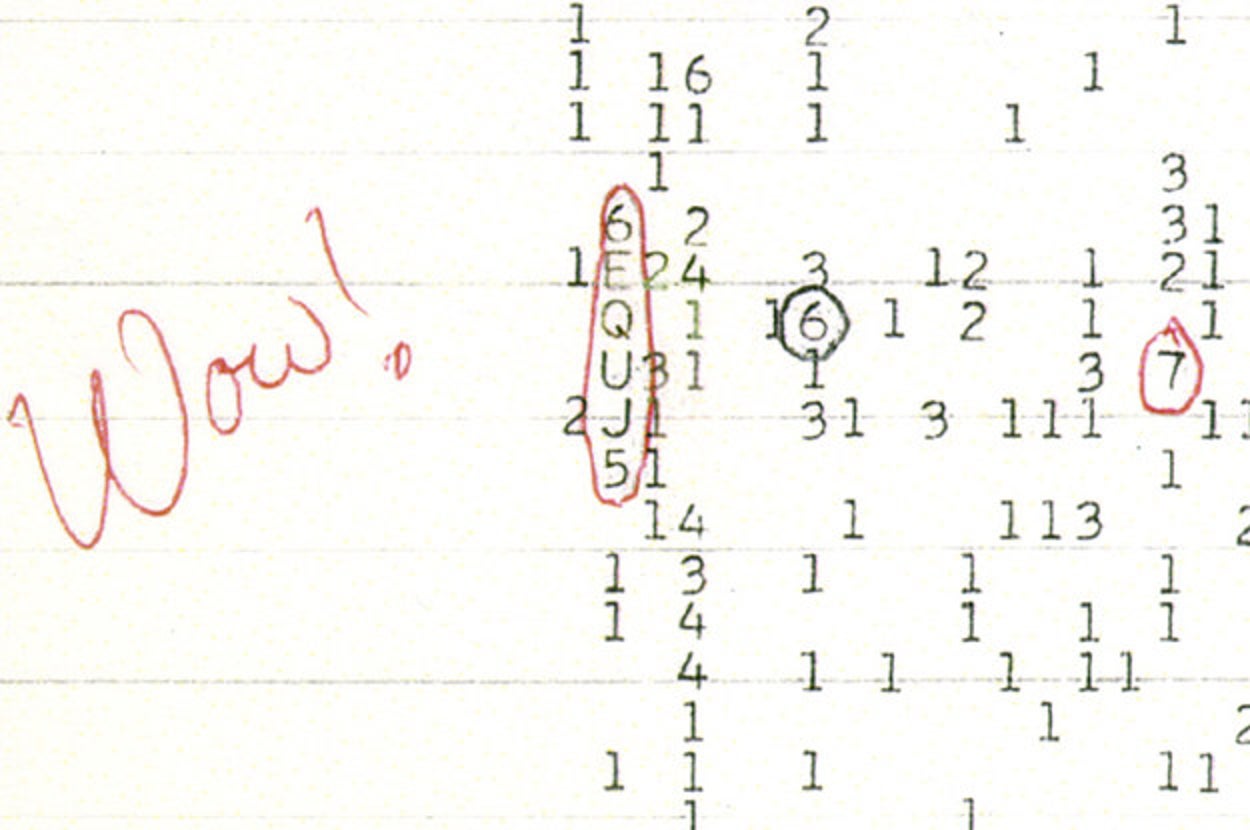 1 2 1
1 16 1 1
1 11 1 1
1 3
6 2 31
1E24 3 12 1 21
Q 1 16 1 2 1 1
U31 1 3 7
2J1 31 3 111 11
51 1
14 1 113 2
1 3 1 1 1
1 4 1 1 1
4 1 1 1 11
1 1 2
1 1 1 11
1 1
Wow!